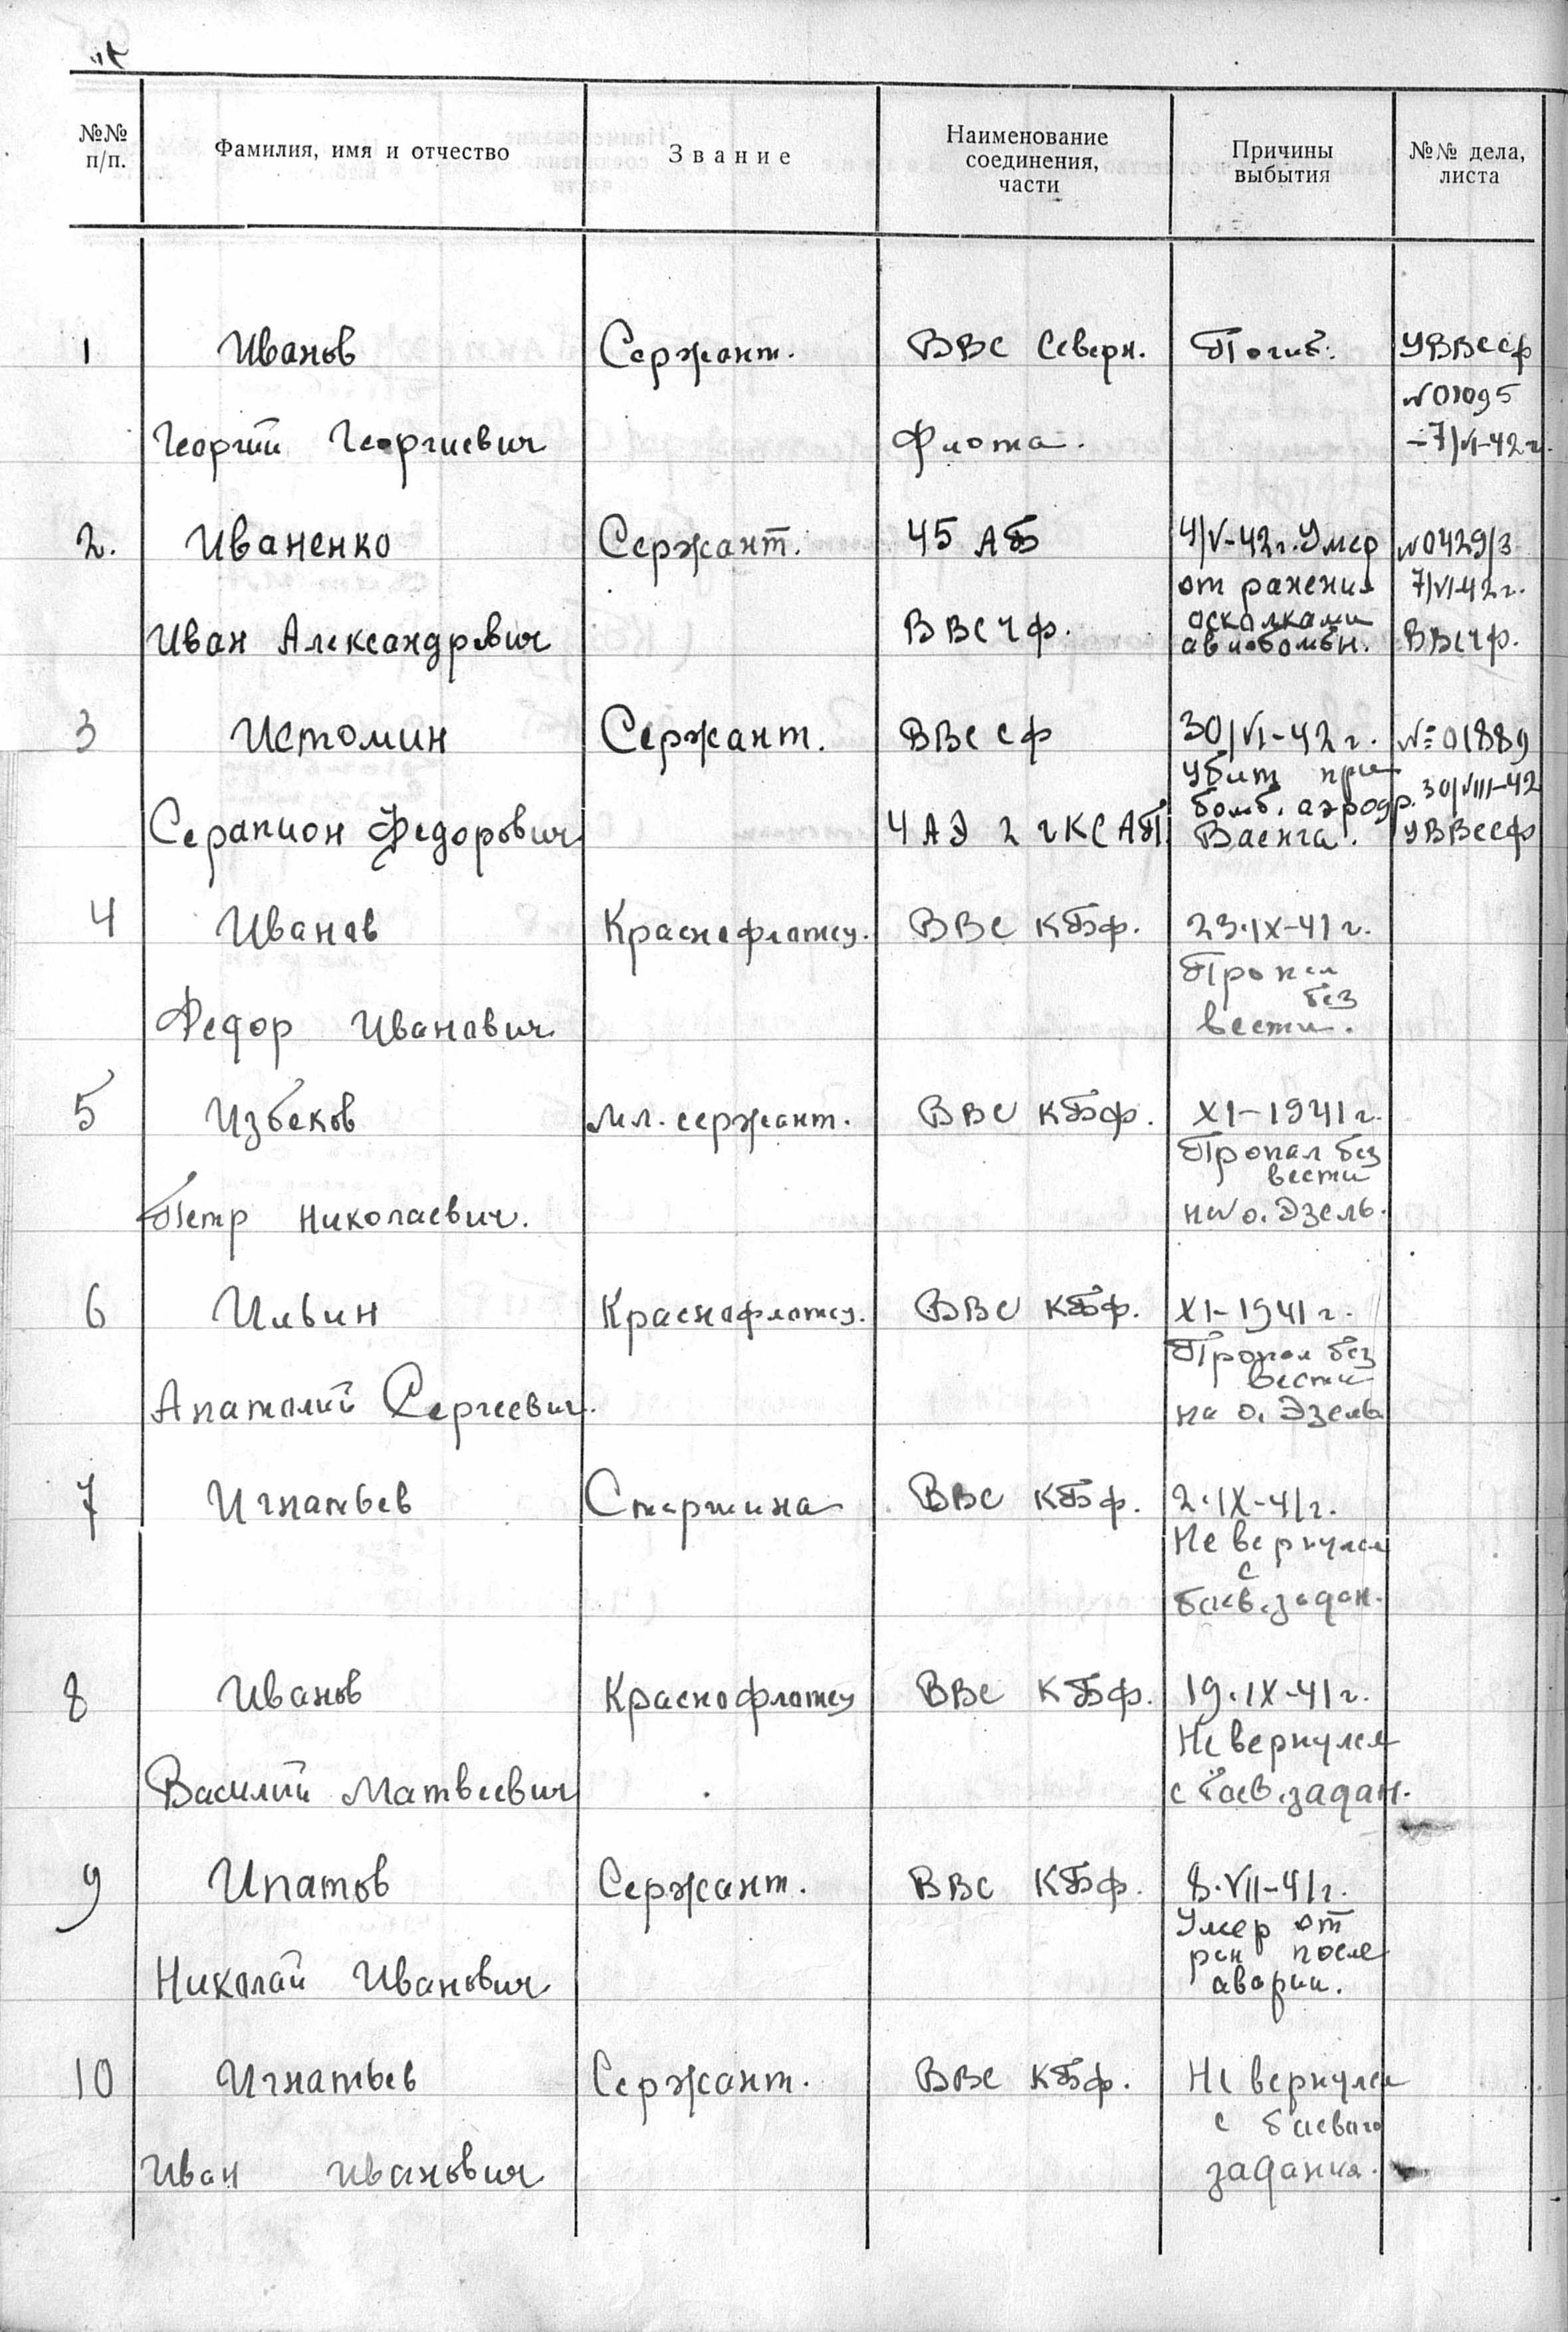 №№ п/п. Фамилия, имя и отчество Звание Наименование соединения, части Причины выбытия №№ дела, листа
1 Иванов Сержант. ВВС Северн. Погиб. УВВССФ
№01095
Георгий Георгиевич Флота. -7/VI-42 г.
2. Иваненко Сержант. 45 АБ 4/V-42 г. Умер №0429/3
от ранения 7/VI-42 г.
Иван Александрович ВВС ЧФ. осколками ВВСЧФ.
авиабомбы.
3 Истомин Сержант. ВВС СФ 30/VI-42 г. № 01889
убит при 30/VIII-42
бомб. аэродр.
Серапион Федорович 4 АЭ 2 гКСАП. Ваенга. УВВССФ
4 Иванов Краснофлотец. ВВС КБФ. 23.IX-41 г.
Пропал
без
Федор Иванович вести.
5 Избеков Мл. сержант. ВВС КБФ. XI-1941 г.
Пропал без
вести
Петр Николаевич. на о. Эзель.
6 Ильин Краснофлотец. ВВС КБФ. XI-1941 г.
Пропал без
вести
Анатолий Сергеевич. на о. Эзель
7 Игнатьев Старшина ВВС КБФ. 2.IX-41 г.
Не вернулся
с
боев. задан.
8 Иванов Краснофлотец ВВС КБФ. 19.IX-41 г.
Не вернулся
Василий Матвеевич с боев. задан.
9 Ипатов Сержант. ВВС КБФ. 8.VII-41 г.
Умер от
ран после
Николай Иванович аварии.
10 Игнатьев Сержант. ВВС КБФ. Не вернулся
с боевого
Иван Иванович задания.